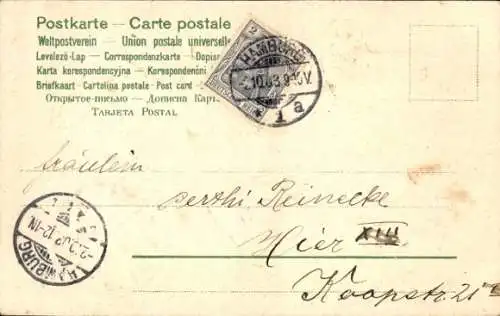 Postkarte — Carte postale
Weltpostverein — Union postale universelle
Levelező-Lap — Correspondenzkarte — Dopisn
Karta korespondencyjna — Korespondenční
Briefkaart - Cartolina postale - Post card
Открытое письмо — Дописна Карта
TARJETA POSTAL
2
HAMBURG
10.03 9-10V.
1 a
fräulein
Berthi Reinecke
Hier XIII
Koopstr. 21
HAMBURG
12-1N.